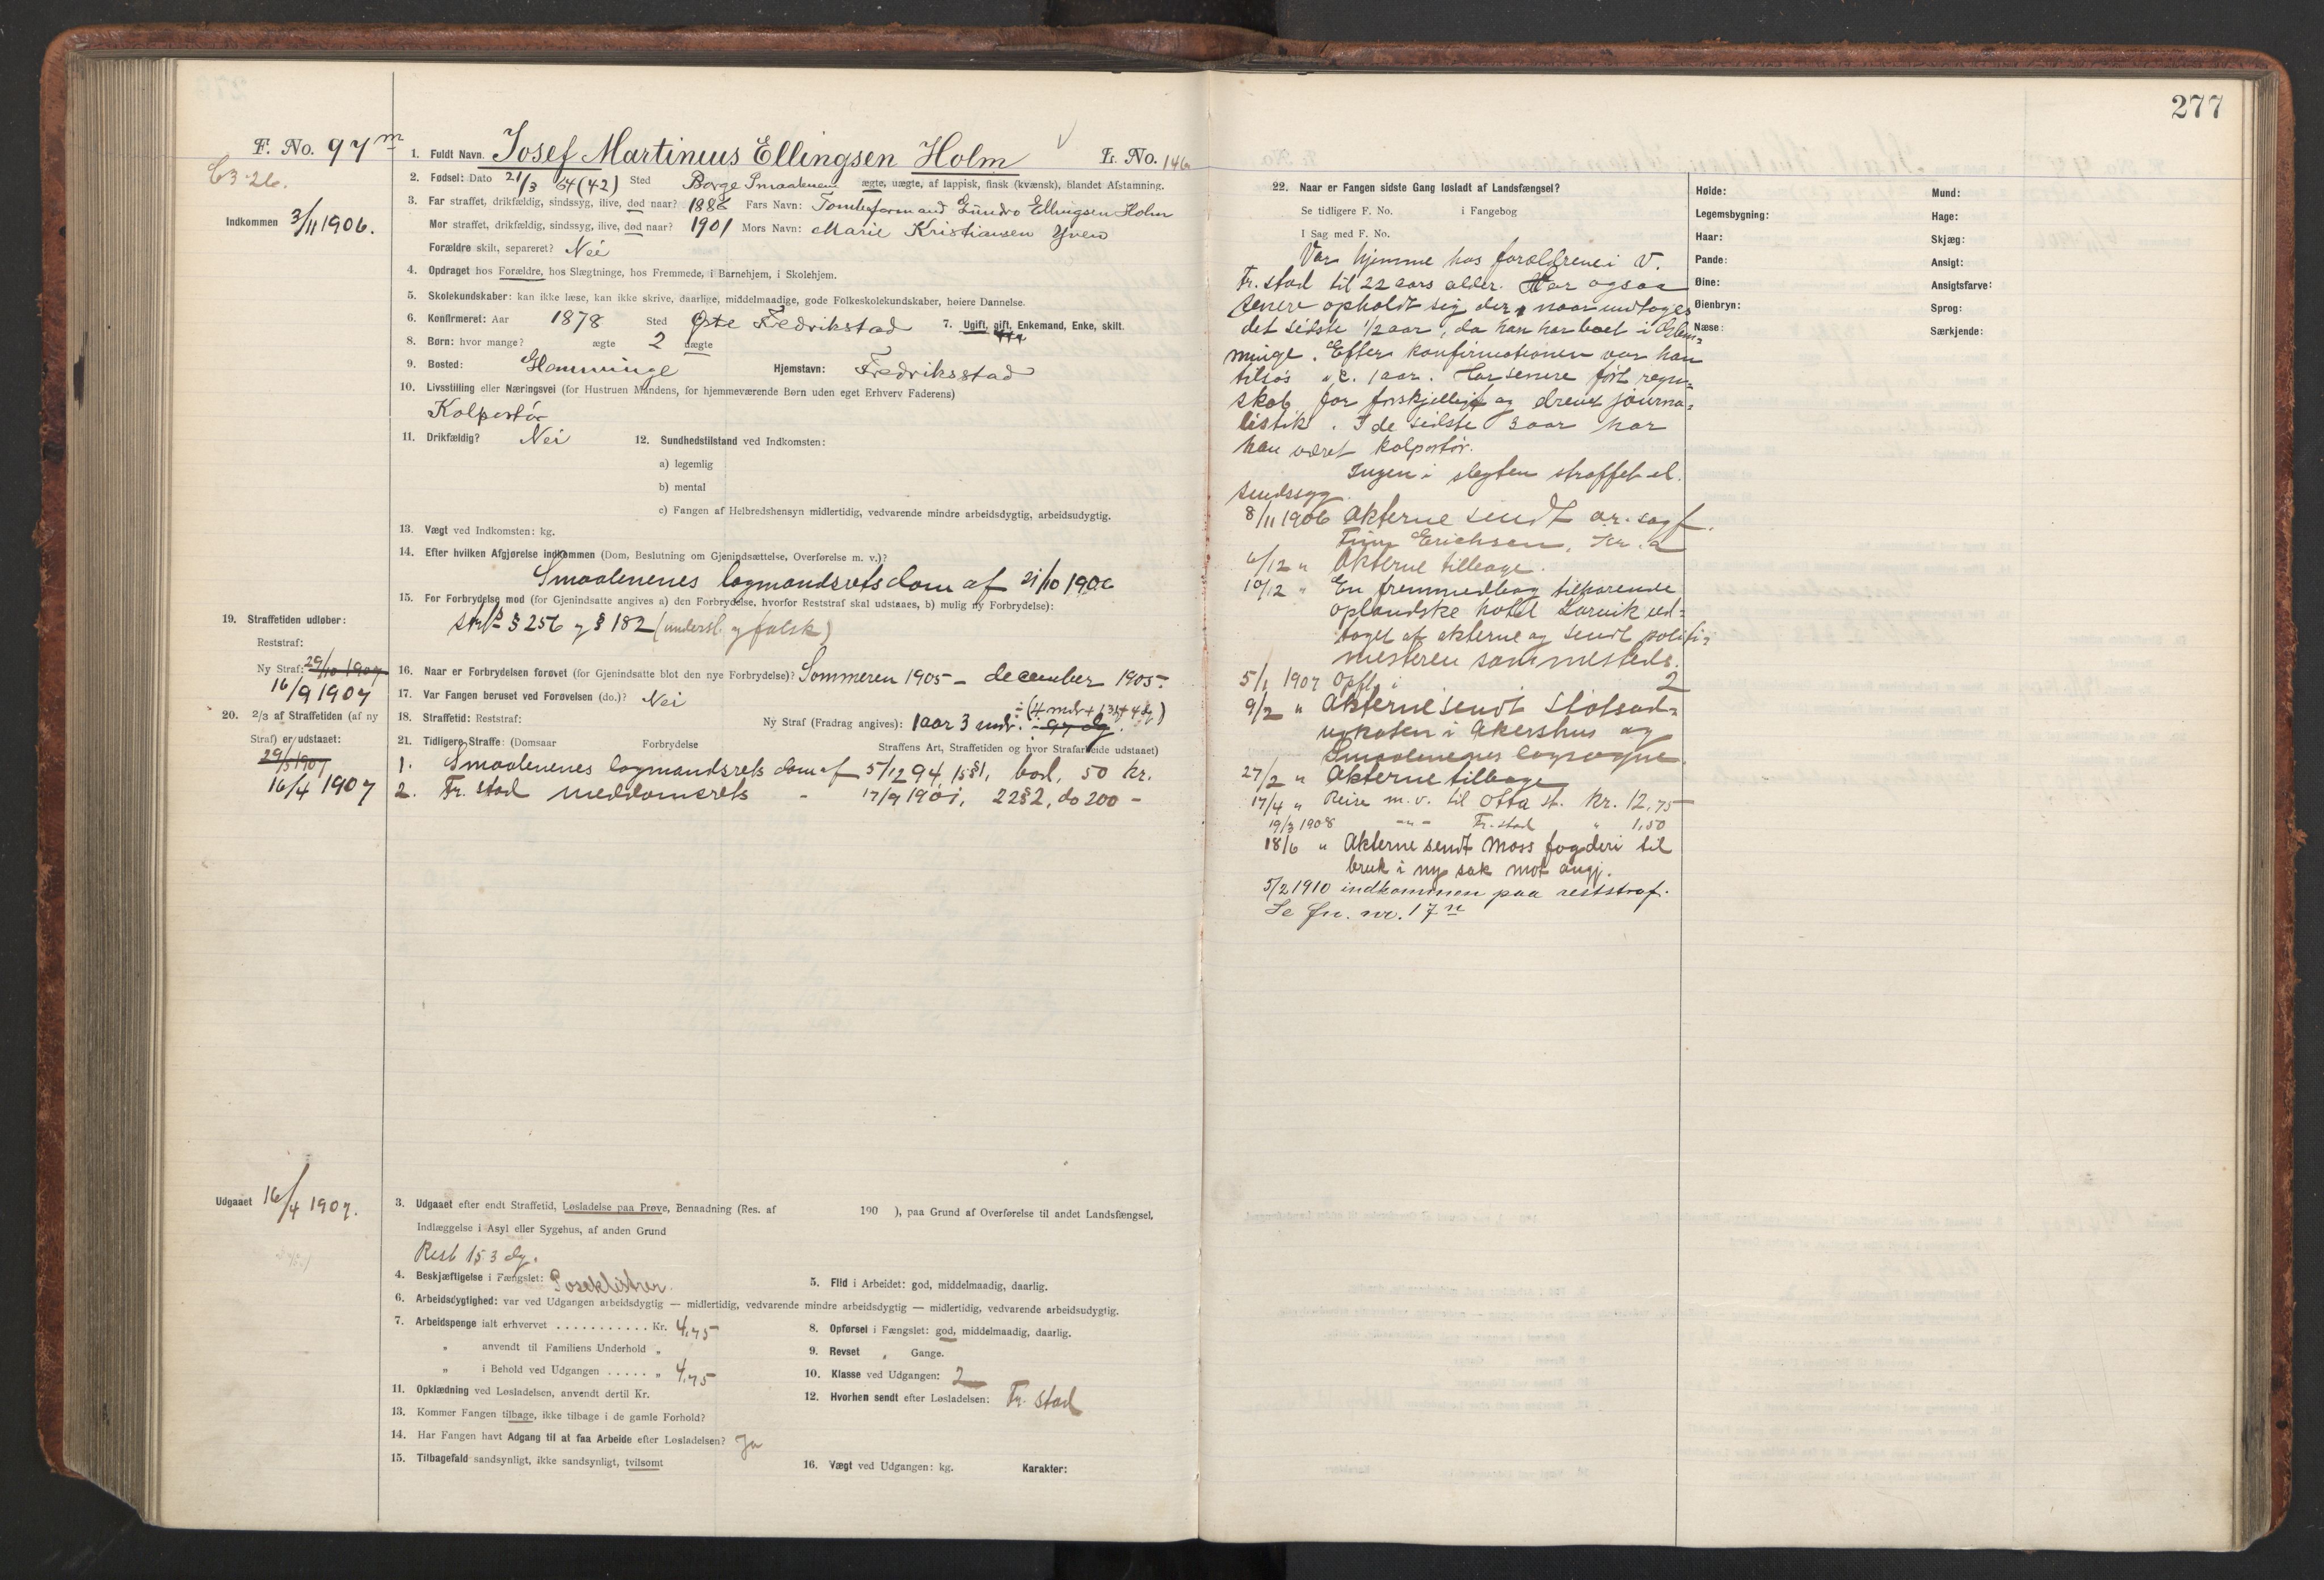 277
F. No. 97 m
C3 26.
Indkommen 3/11 1906.
1. Fuldt Navn. Josef Martinius Ellingsen Holm L. No. 146
2. Fødsel: Dato 21/3 64 (42) Sted Borge Smaalenene ægte, uægte, af lappisk, finsk (kvænsk), blandet Afstamning.
3. Far straffet, drikfældig, sindssyg, ilive, død naar? 1886 Fars Navn: Tomteformand Ellingsen Holm
Mor straffet, drikfældig, sindssyg, ilive, død naar? 1901 Mors Navn: Marie Kristiansen
Forældre skilt, separeret? Nei
4. Opdraget hos Forældre, hos Slægtninge, hos Fremmede, i Barnehjem, i Skolehjem.
5. Skolekundskaber: kan ikke læse, kan ikke skrive, daarlige, middelmaadige, gode Folkeskolekundskaber, høiere Dannelse.
6. Konfirmeret: Aar 1878 Sted Øste Fredrikstad 7. Ugift, gift, Enkemand, Enke, skilt.
8. Børn: hvor mange? ægte 2 uægte
9. Bosted: Glemminge Hjemstavn: Fredriksstad
10. Livsstilling eller Næringsvei (for Hustruen Mandens, for hjemmeværende Børn uden eget Erhverv Faderens)
Kolportør
11. Drikfældig? Nei 12. Sundhedstilstand ved Indkomsten:
a) legemlig
b) mental
c) Fangen af Helbredshensyn midlertidig, vedvarende mindre arbeidsdygtig, arbeidsudygtig.
13. Vægt ved Indkomsten: kg.
14. Efter hvilken Afgjørelse indkommen (Dom, Beslutning om Gjenindsættelse, Overførelse m. v.)?
Smaalenenes lagmandsrets dom af 21/10 1906
15. For Forbrydelse mod (for Gjenindsatte angives a) den Forbrydelse, hvorfor Reststraf skal udstaaes, b) mulig ny Forbrydelse):
Strfl § 256 og § 182 (undersl. og falsk)
19. Straffetiden udløber:
Reststraf:
Ny Straf: 29/10 1907
16/9 1907
16. Naar er Forbrydelsen forøvet (for Gjenindsatte blot den nye Forbrydelse)? Sommeren 1905 – december 1905.
17. Var Fangen beruset ved Forøvelsen (do.)? Nei
20. 2/3 af Straffetiden (af ny
Straf) er udstaaet:
29/5 1907
16/4 1907
18. Straffetid: Reststraf: Ny Straf (Fradrag angives): 1 aar 3 mdr. ÷ 97 dg. ÷ (4 mdr + 13 + 4 dg)
21. Tidligere Straffe: (Domsaar Forbrydelse Straffens Art, Straffetiden og hvor Strafarbeide udstaaet)
1. Smaalenenes lagmandsrets dom af 5/12 94, 15 § 1, bod, 50 kr.
2. Fr. stad meddomsrets - 17/9 1901, 22 § 2, do 200 -
Udgaaet 16/4 1907.
3. Udgaaet efter endt Straffetid, Løsladelse paa Prøve, Benaadning (Res. af 190 ), paa Grund af Overførelse til andet Landsfængsel,
Indlæggelse i Asyl eller Sygehus, af anden Grund
Rest 153 dg.
4. Beskjæftigelse i Fængslet: Poseklistrer. 5. Flid i Arbeidet: god, middelmaadig, daarlig.
6. Arbeidsdygtighed: var ved Udgangen arbeidsdygtig — midlertidig, vedvarende mindre arbeidsdygtig — midlertidig, vedvarende arbeidsudygtig.
7. Arbeidspenge ialt erhvervet ........... Kr. 4,75 8. Opførsel i Fængslet: god, middelmaadig, daarlig.
„ anvendt til Familiens Underhold „ 9. Revset , Gange.
„ i Behold ved Udgangen ..... „ 4,75 10. Klasse ved Udgangen: 2
11. Opklædning ved Løsladelsen, anvendt dertil Kr. 12. Hvorhen sendt efter Løsladelsen: Fr. stad
13. Kommer Fangen tilbage, ikke tilbage i de gamle Forhold?
14. Har Fangen havt Adgang til at faa Arbeide efter Løsladelsen? Ja
15. Tilbagefald sandsynligt, ikke sandsynligt, tvilsomt 16. Vægt ved Udgangen: kg. Karakter:
22. Naar er Fangen sidste Gang løsladt af Landsfængsel?
Se tidligere F. No. i Fangebog
I Sag med F. No.
Var hjemme hos forældrene i V.
Fr. stad til 22 aars alder. Har ogsaa
senere opholdt sig der, naar undtages
det sidste 1/2 aar, da han har boet i Glem=
minge. Efter konfirmationen var han
tilsjøs c. 1 aar. Har senere ført regn=
skab for forskjellige og drevet journa=
listik. I de sidste 3 aar har
han været kolportør.
Ingen i slegten straffet el.
sindssyg.
8/11 1906 Akterne sendt o.r. sagf.
Finn Erichsen, Kr.a
6/12 " Akterne tilbage.
10/12 " En fremmedbog tilhørende
oplandske hotel Larvik ud=
taget af akterne og sendt politi=
mesteren sammesteds.
5/1 1907 Opfl. i 2
9/2 " Akterne sendt Statsad=
vokaten i Akershus og
Smaalenenes lagsogne.
27/2 " Akterne tilbage
17/4 " Reise m.v. til Otta st. Kr. 12,75
19/3 1908 -"- Fr. stad " 1,50
18/6 " Akterne sendt Moss fogderi til
bruk i ny sak mot angj.
5/2 1910 indkommen paa reststraf.
Se fn. nr. 17 n
Høide:
Legemsbygning:
Haar:
Pande:
Øine:
Øienbryn:
Næse:
Mund:
Hage:
Skjæg:
Ansigt:
Ansigtsfarve:
Sprog:
Særkjende: